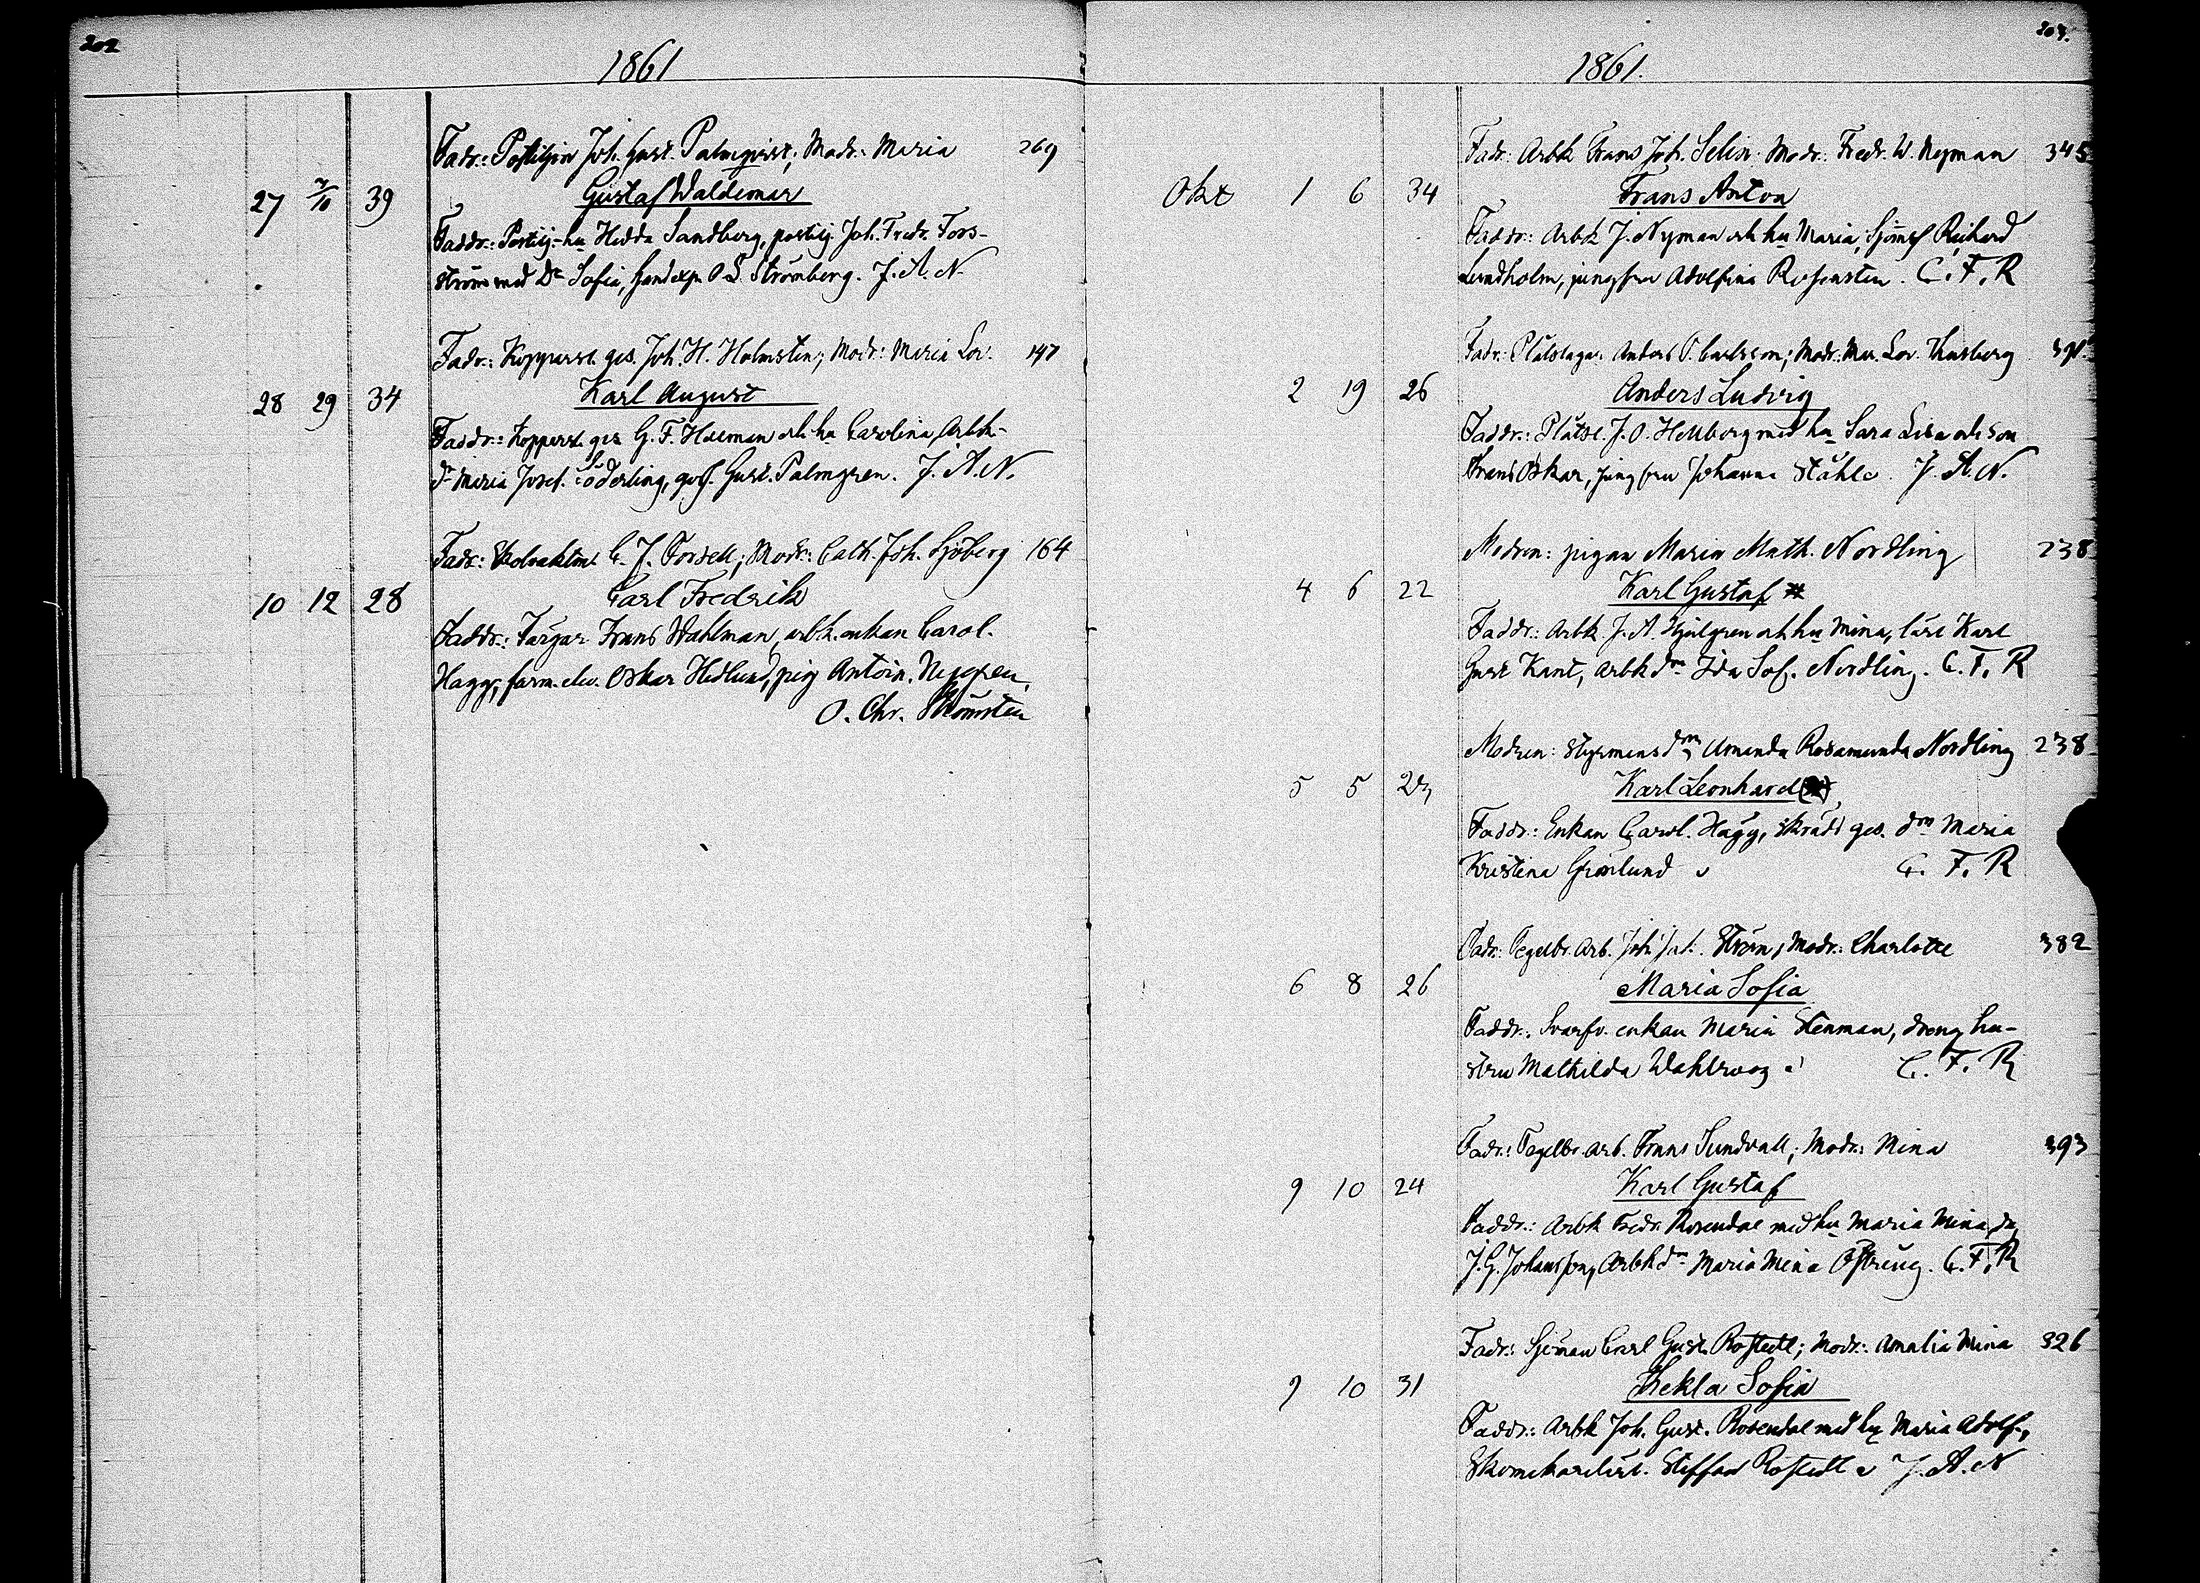 202
1861
Fadr.: Postiljon Joh. Gust. Palmqvist; Modr.: Maria 269
27 7/10 39 Gustaf Waldemar
Faddr.: Postilj-hu Hedda Sandberg, postilj. Joh. Fredr. Fors-
ström med Dr Sofia, handexp. O L Strömberg. J. A. N.
Fadr.: Kopparsl. ges. Joh. H. Holmsten; Modr.: Maria Lov. 147
28 29 34 Karl August
Faddr.: Kopparsl. ges G. F. Hneman och hu Carolina, Arbk-
dr Maria Josef. Söderling, Gust. Palmgren. J. A. N.
Fadr.: C. J. Forsell; Modr.: Cath. Joh. Sjöberg 164
10 12 28 Carl Fredrik
Faddr.: Färgar. Frans Wahlman, arbk. enkan Carol.
Hägg, farm. elev. Oskar Hedlund, pig Antoin. Nyppen
O. Chr. Strömsten
203.
1861.
Fadr: Arbk Frans Joh. Selin. Modr.: Fredr. W. Nyman 345
Okt 1 6 34 Frans Anton
Faddr: Arbk J. Nyman och hu Maria, Sjöms Richard
Lundholm, jungfru Adolfina Rosensten. C. F. R
Fadr: Plåtslagar. Anders P. Carlsson; Modr: Mar. Lov. Thusberg
2 19 26 Anders Ludvig
Faddr.: Plåtsl. J. O. Hellberg med hu Sara Lisa och son
Frans Oskar, jungfru Johanna Ståhle. J. A. N.
Modren: pigan Maria Math. Nordling 238
4 6 22 Karl Gustaf
Faddr.: Arbk J. A. Hjulgren och hu Mina, lärl Karl
Gust Kant, Arbk dr Ida Sof. Nordling. C. F. R
Modren: styrmans dr Amanda Rosamunda Nordling 238
5 5 23 Karl Leonhard
Faddr.: Enkan Carol. Hägg, skrädd ges. dr Maria
Kristina Grönlund C. F. R
Fadr: Tegelbr. Arb. Joh. Jak. Ström; Modr: Charlotte 382
6 8 26 Maria Sofia
Faddr.: Svarfv. enkan Maria Stenman, dreng hu-
stru Mathilda Wahlroos C. F. R
Fadr.: Tegelbr. Arb. Frans Sundvall; Modr.: Mina 393
9 10 24 Karl Gustaf
Faddr.: Arbk Fredr. Rosendal med hu Maria Mina, dr
J. G. Johansson, Arbk dr Maria Mina C. F. R
Fadr.: Sjöman Carl Gust. Rostedt; Modr.: Amalia Mina 326
9 10 31 Thekla Sofia
Faddr.: Arbk Joh. Gust. Rosendal med hu Maria Adolf.,
Skomakarlärl. Steffan Rostedt J. A. N